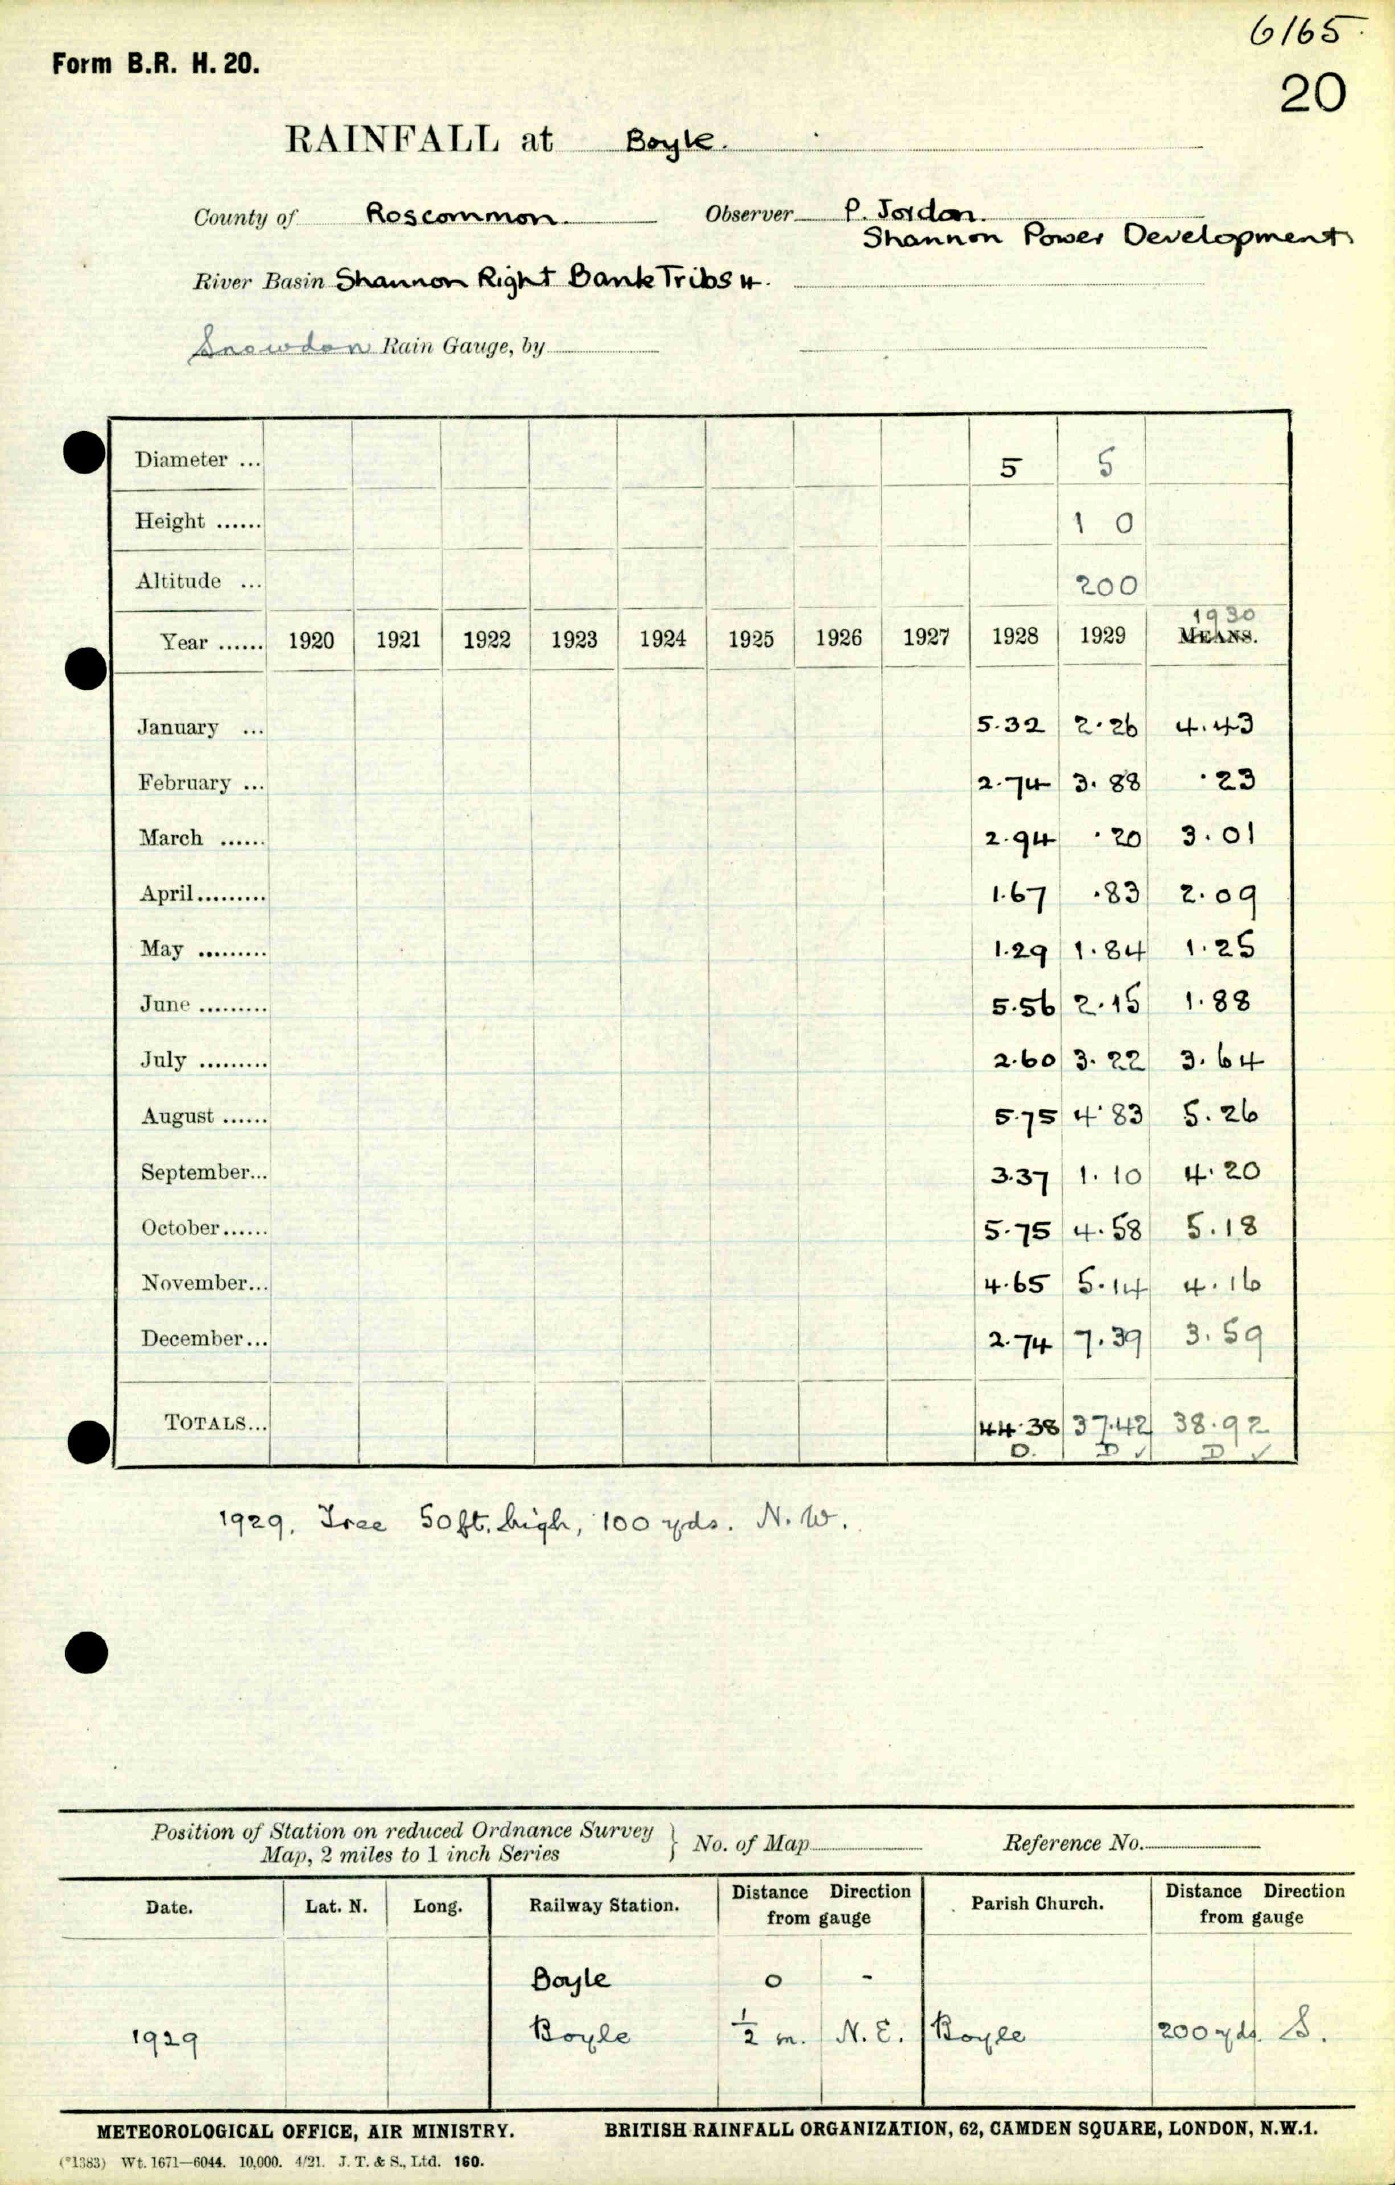 6165.
Form B.R. H. 20.
20
RAINFALL at Boyle.
County of Roscommon. Observer P. Jordan.
Shannon Power Development
River Basin Shannon Right Bank Tribs 4.
Snowdon Rain Gauge, by
Diameter ... 5 5
Height ...... 1 0
Altitude ... 200
1930
Year ...... 1920 1921 1922 1923 1924 1925 1926 1927 1928 1929 MEANS.
January ... 5.32 2.26 4.43
February ... 2.74 3.88 .23
March ...... 2.94 .20 3.01
April......... 1.67 .83 2.09
May ......... 1.29 1.84 1.25
June ......... 5.56 2.15 1.88
July ......... 2.60 3.22 3.64
August ...... 5.75 4.83 5.26
September... 3.37 1.10 4.20
October...... 5.75 4.58 5.18
November... 4.65 5.14 4.16
December... 2.74 7.39 3.59
TOTALS... 44.38 37.42 38.92
D. D ✓ D ✓
1929. Tree 50ft. high, 100 yds. N.W.
Position of Station on reduced Ordnance Survey
Map, 2 miles to 1 inch Series } No. of Map Reference No.
Date. Lat. N. Long. Railway Station. Distance Direction from gauge Parish Church. Distance Direction from gauge
Boyle 0 -
1929 Boyle ½ m. N.E. Boyle 200 yds. S.
METEOROLOGICAL OFFICE, AIR MINISTRY. BRITISH RAINFALL ORGANIZATION, 62, CAMDEN SQUARE, LONDON, N.W.1.
(*1383) Wt. 1671—6044. 10,000. 4/21. J. T. & S., Ltd. 160.